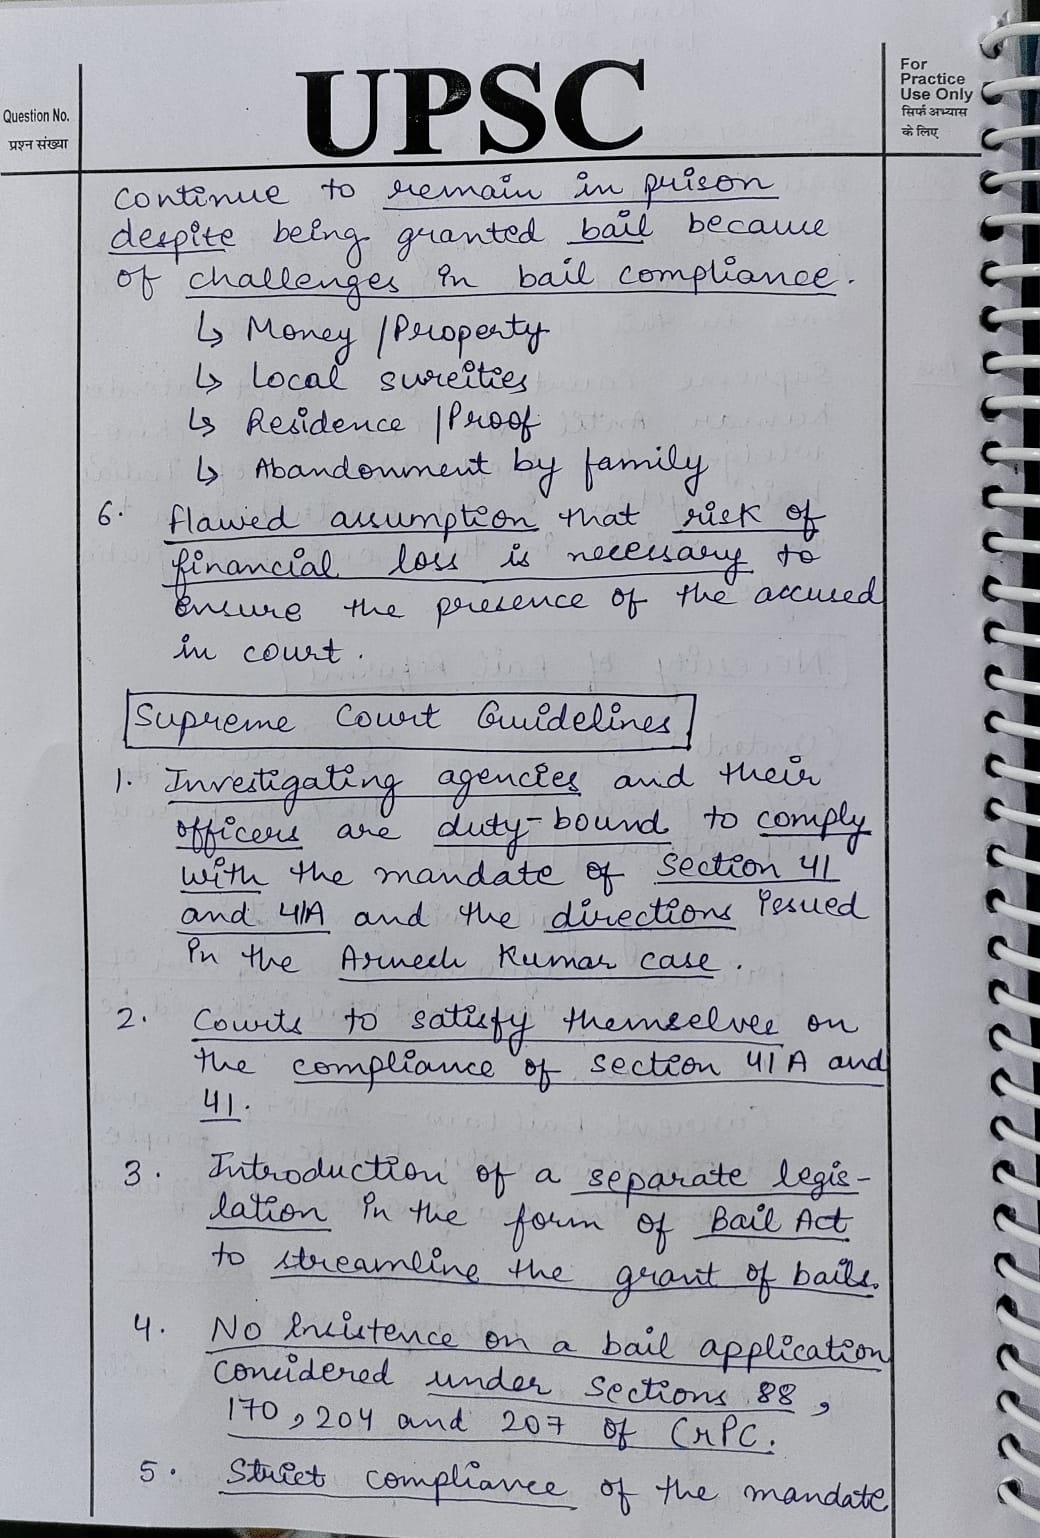 Question No.
प्रश्न संख्या
UPSC
For
Practice
Use Only
सिर्फ अभ्यास
के लिए
continue to remain in prison
despite being granted bail because
of challenges in bail compliance.
↳ Money / Property
↳ Local sureities
↳ Residence / Proof
↳ Abandonment by family
6. flawed assumption that risk of
financial loss is necessary to
ensure the presence of the accused
in court.
Supreme Court Guidelines
1. Investigating agencies and their
officers are duty-bound to comply
with the mandate of section 41
and 41A and the directions issued
in the Arnesh Kumar case.
2. Courts to satisfy themselves on
the compliance of section 41A and
41.
3. Introduction of a separate legis-
lation in the form of Bail Act
to streamline the grant of bails.
4. No insistence on a bail application
considered under sections 88,
170, 204 and 207 of CrPC.
5. Strict compliance of the mandate